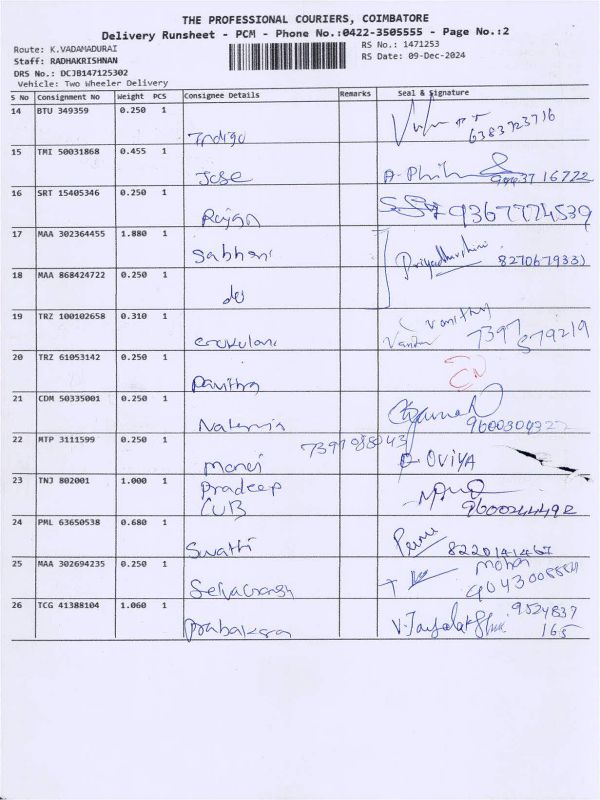 THE PROFESSIONAL COURIERS, COIMBATORE
Delivery Runsheet - PCM - Phone No.:0422-3505555 - Page No.:2
Route: K.VADAMADURAI
RS No.: 1471253
Staff: RADHAKRISHNAN
RS Date: 09-Dec-2024
DRS No.: DCJB147125302
Vehicle: Two Wheeler Delivery
S No Consignment No Weight PCS Consignee Details Remarks Seal & Signature
14 BTU 349359 0.250 1 Indigo 6383723716
15 TMI 50031868 0.455 1 Jose
16 SRT 15405346 0.250 1 Rajan 9367774539
17 MAA 302364455 1.880 1 Sabhari Priyadharshini
18 MAA 868424722 0.250 1 do
19 TRZ 100102658 0.310 1 Gokulani Vanitha 7397 579219
20 TRZ 61053142 0.250 1 Pavithra
21 CDM 50335001 0.250 1
22 MTP 3111599 0.250 1 7397988043 OVIYA
23 TNJ 802001 1.000 1 Pradeep CUB
24 PML 63650538 0.680 1 Swathi 8220141467
25 MAA 302694235 0.250 1 mohan
26 TCG 41388104 1.060 1 Prabakaran 9524837 165